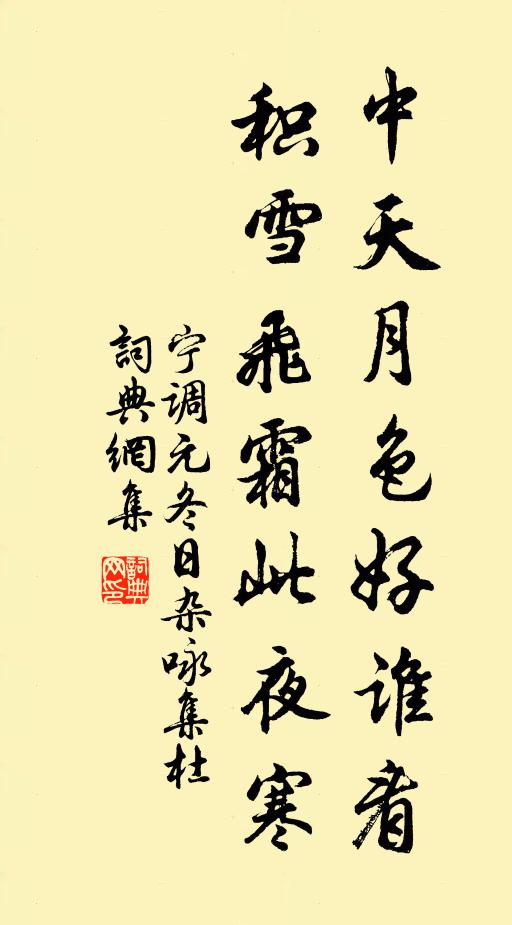 中天月色好谁看
积雪飛霜此夜寒
宁调元冬日杂咏集杜
詞典網集
詞典
网印